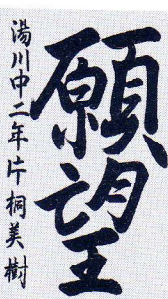 願望
湯川中二年片桐美樹